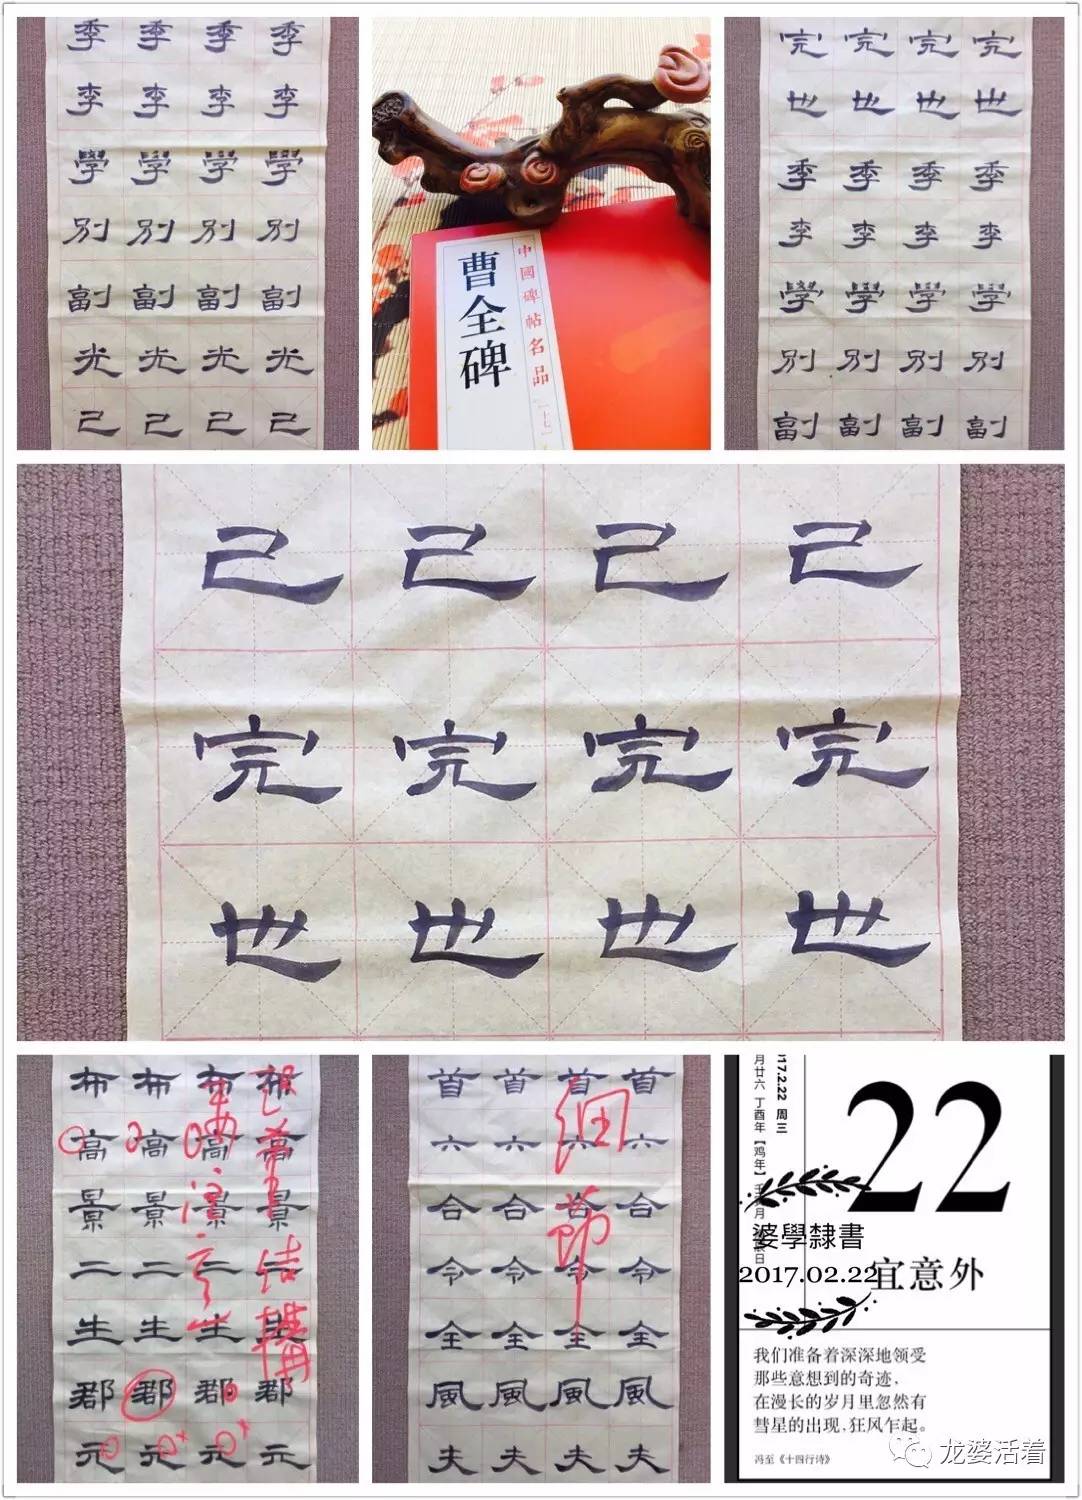 季 季 季 季
李 李 李 李
學 學 學 學
別 別 別 別
副 副 副 副
光 光 光 光
己 己 己 己
中國碑帖名品
[十七]
曹全碑
完 完 完 完
也 也 也 也
季 季 季 季
李 李 李 李
學 學 學 學
別 別 別 別
副 副 副 副
己 己 己 己
完 完 完 完
也 也 也 也
布 布 布 布
高 高 高 高
景 景 景 景
二 二 二 二
生 生 生 生
郡 郡 郡 郡
元 元 元 元
結構
首 首 首 首
六 六 六 六
合 合 合 合
令 令 令 令
全 全 全 全
風 風 風 風
夫 夫 夫 夫
细节
17.2.22 周三
月廿六 丁酉年【鸡年】
22
婆學隸書
2017.02.22
宜意外
我们准备着深深地领受
那些意想到的奇迹，
在漫长的岁月里忽然有
彗星的出现，狂风乍起。
冯至《十四行诗》
龙婆活着